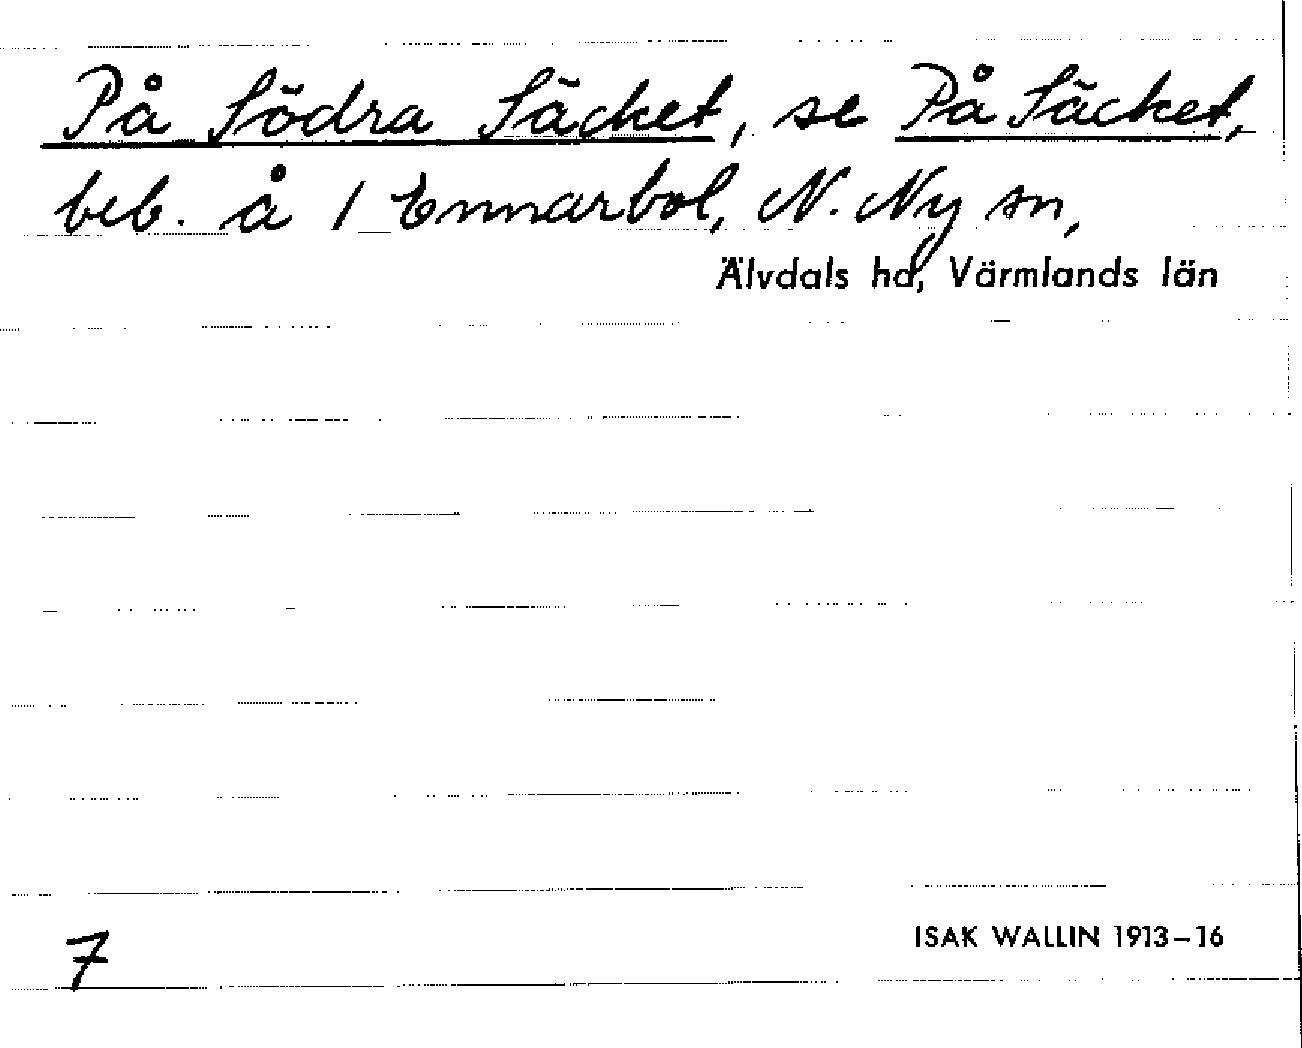 På Södra Säcket, se På Säcket,
beb. å 1 Ennarbol, N. Ny sn,
Älvdals hd, Värmlands län
7
ISAK WALLIN 1913–16